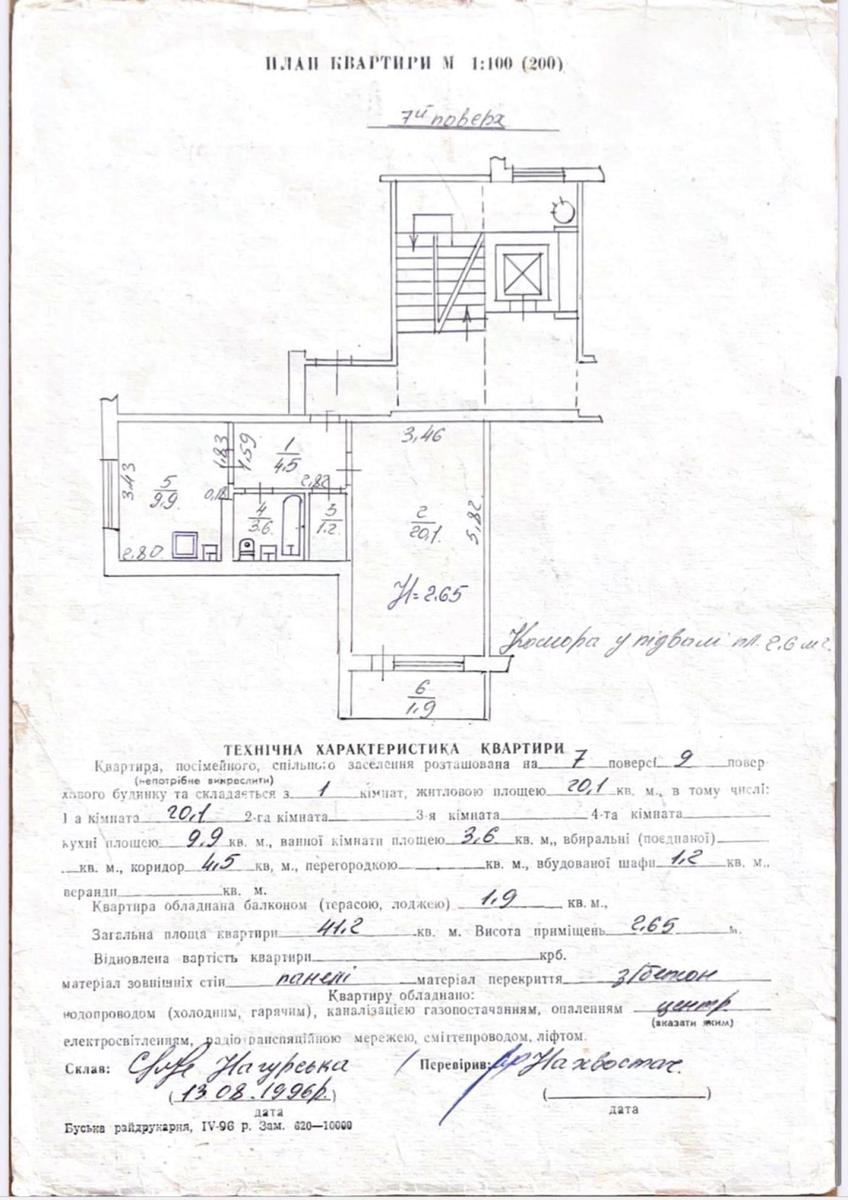 ПЛАН КВАРТИРИ М 1:100 (200)
7й поверх
3,46
1,83
1,59
1
4.5
3.43
5
9.9
0,18
2,82
4
3.6
3
1.2
2
20,1
5,82
2.80
H=2.65
Комора у підвалі пл. 2.6 м2.
6
1.9
ТЕХНІЧНА ХАРАКТЕРИСТИКА КВАРТИРИ
Квартира, посімейного, спільного заселення розташована на 7 поверсі 9 повер
(непотрібне викреслити)
хового будинку та складається з 1 кімнат, житловою площею 20,1 кв. м., в тому числі:
1 а кімната 20,1 2-га кімната 3-я кімната 4-та кімната
кухні площею 9.9 кв. м., ванної кімнати площею 3,6 кв. м,, вбиральні (поєднаної)
кв. м., коридор 4,5 кв, м., перегородкою кв. м., вбудованої шафи 1.2 кв. м.,
веранди кв. м.
Квартира обладнана балконом (терасою, лоджею) 1.9 кв. м.,
Загальна площа квартири 41.2 кв. м. Висота приміщень 2.65 м.
Відновлена вартість квартири крб.
матеріал зовнішніх стін панелі матеріал перекриття з/бетон
Квартиру обладнано:
водопроводом (холодним, гарячим), каналізацією газопостачанням, опаленням центр.
(вказати яким)
електросвітленням, радіотранспяційною мережею, смігтепроводом, ліфтом.
Склав: Нагурська Перевірив: Нахвостач.
(13.08.1996р.) ( )
дата дата
Буська райдрукарня, IV-96 р. Зам. 620—10000